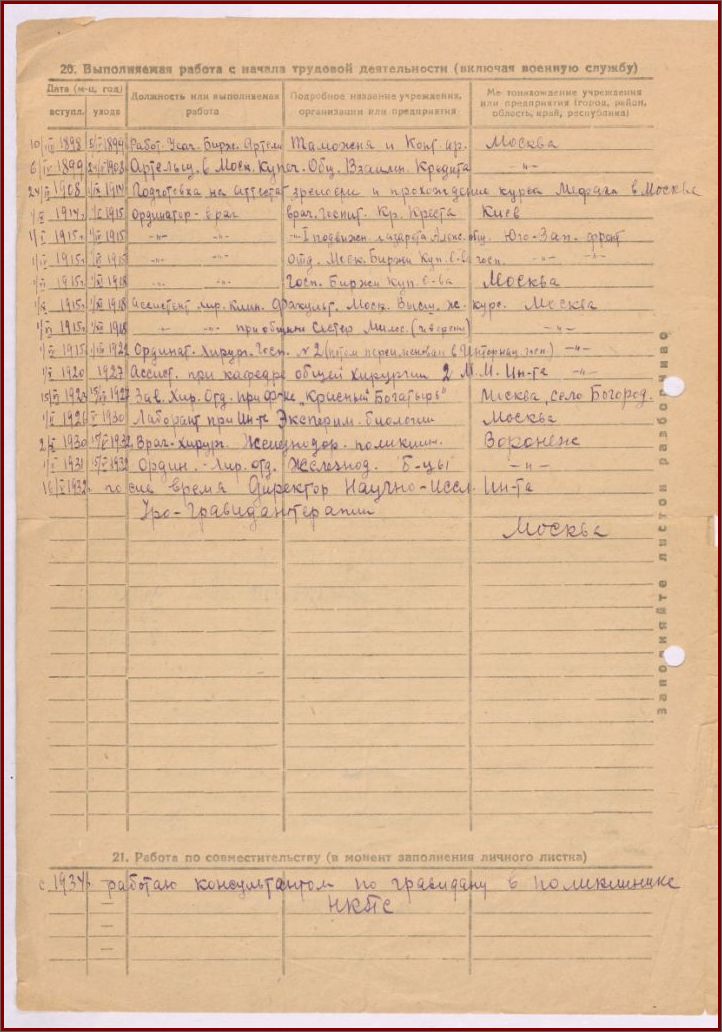 20. Выполняемая работа с начала трудовой деятельности (включая военную службу)
Дата (м-ц, год)
вступл. ухода
Должность или выполняемая работа
Подробное название учреждения, организации или предприятия
Ме тонахождение учреждения или предприятия (город, район, область, край, республика)
1898 1899 Работ. Биржев. Артели Таможня и Москва
1899 1908 Артельщ. в Моск. Купеч. Общ. Взаимн. Кредита -"-
1908 1914 Подготовка на аттестат зрелости и прохождение курса Медфака в Москве
1914 1915 Ординатор - врач врач. Госпит. Кр. Креста Киев
1915 1915 -"- -"- -"- I подвижн. лазарета Алекс. общ. Юго-Зап. фронт
1915 1915 -"- -"- Отд. Моск. Биржи Куп. о-в госп. -"- -"-
1915 1918 -"- -"- Госп. Биржи Куп. о-ва Москва
1915 1918 Ассистент хир. клин. Факульт. Моск. Высш. ж. курс. Москва
1915 1918 -"- -"- при общине Сестер Милос. -"-
1915 1922 Ординат. Хирург. Госп. №2 (потом переименован в -"-
1920 1927 Ассист. при кафедре общей Хирургии 2 М.М. Ин-та -"-
1923 1927 Зав. Хир. Отд. при ф-ке „Красный Богатырь" Москва, село Богород.
1926 1930 Лаборант при Ин-те Эксперим. биологии Москва
1930 1932 Врач-Хирург. Железнодор. поликлин. Воронеж
1931 1932 Ордин. Хир. отд. Железнод. Б-цы -"-
1932 по сие время Директор Научно-Иссл. Ин-та
Уро-Гравиданотерапии
Москва
заполняйте листок разборчиво
21. Работа по совместительству (в момент заполнения личного листка)
с 1934 работаю консультантом по гравидану в поликлинике
НКПС